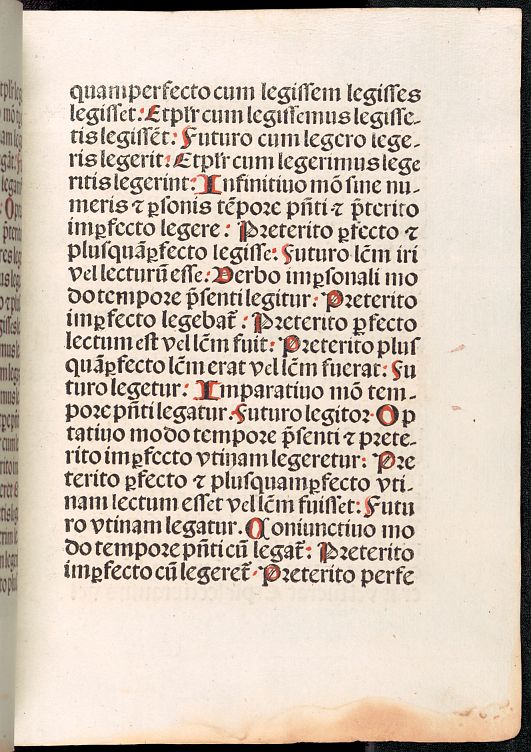 quamperfecto cum legissem legisses
legisset: Et pl̄r cum legissemus legisse-
tis legissēt: Futuro cum legero lege-
ris legerit: Et pl̄r cum legerimus lege
ritis legerint: Infinitiuo mō sine nu-
meris ⁊ ꝑsonis tēpore pn̄ti ⁊ p̄terito
imꝑfecto legere: Preterito ꝑfecto ⁊
plusquāꝑfecto legisse: Futuro lc̄m iri
vel lecturū esse: Verbo imꝑsonali mo
do tempore p̄senti legitur: Preterito
imꝑfecto legebat̄: Preterito ꝑfecto
lectum est vel lc̄m fuit: Preterito plus
quāꝑfecto lc̄m erat vel lc̄m fuerat: Fu
turo legetur: Imparatiuo mō tem-
pore pn̄ti legatur. Futuro legitor. Op
tatiuo modo tempore p̄senti ⁊ prete-
rito imꝑfecto vtinam legeretur: Pre
terito ꝑfecto ⁊ plusquamꝑfecto vti-
nam lectum esset vel lc̄m fuisset: Futu
ro vtinam legatur. Coniunctiuo mo
do tempore pn̄ti cū legat̄: Preterito
imꝑfecto cū legeret̄. Preterito perfe